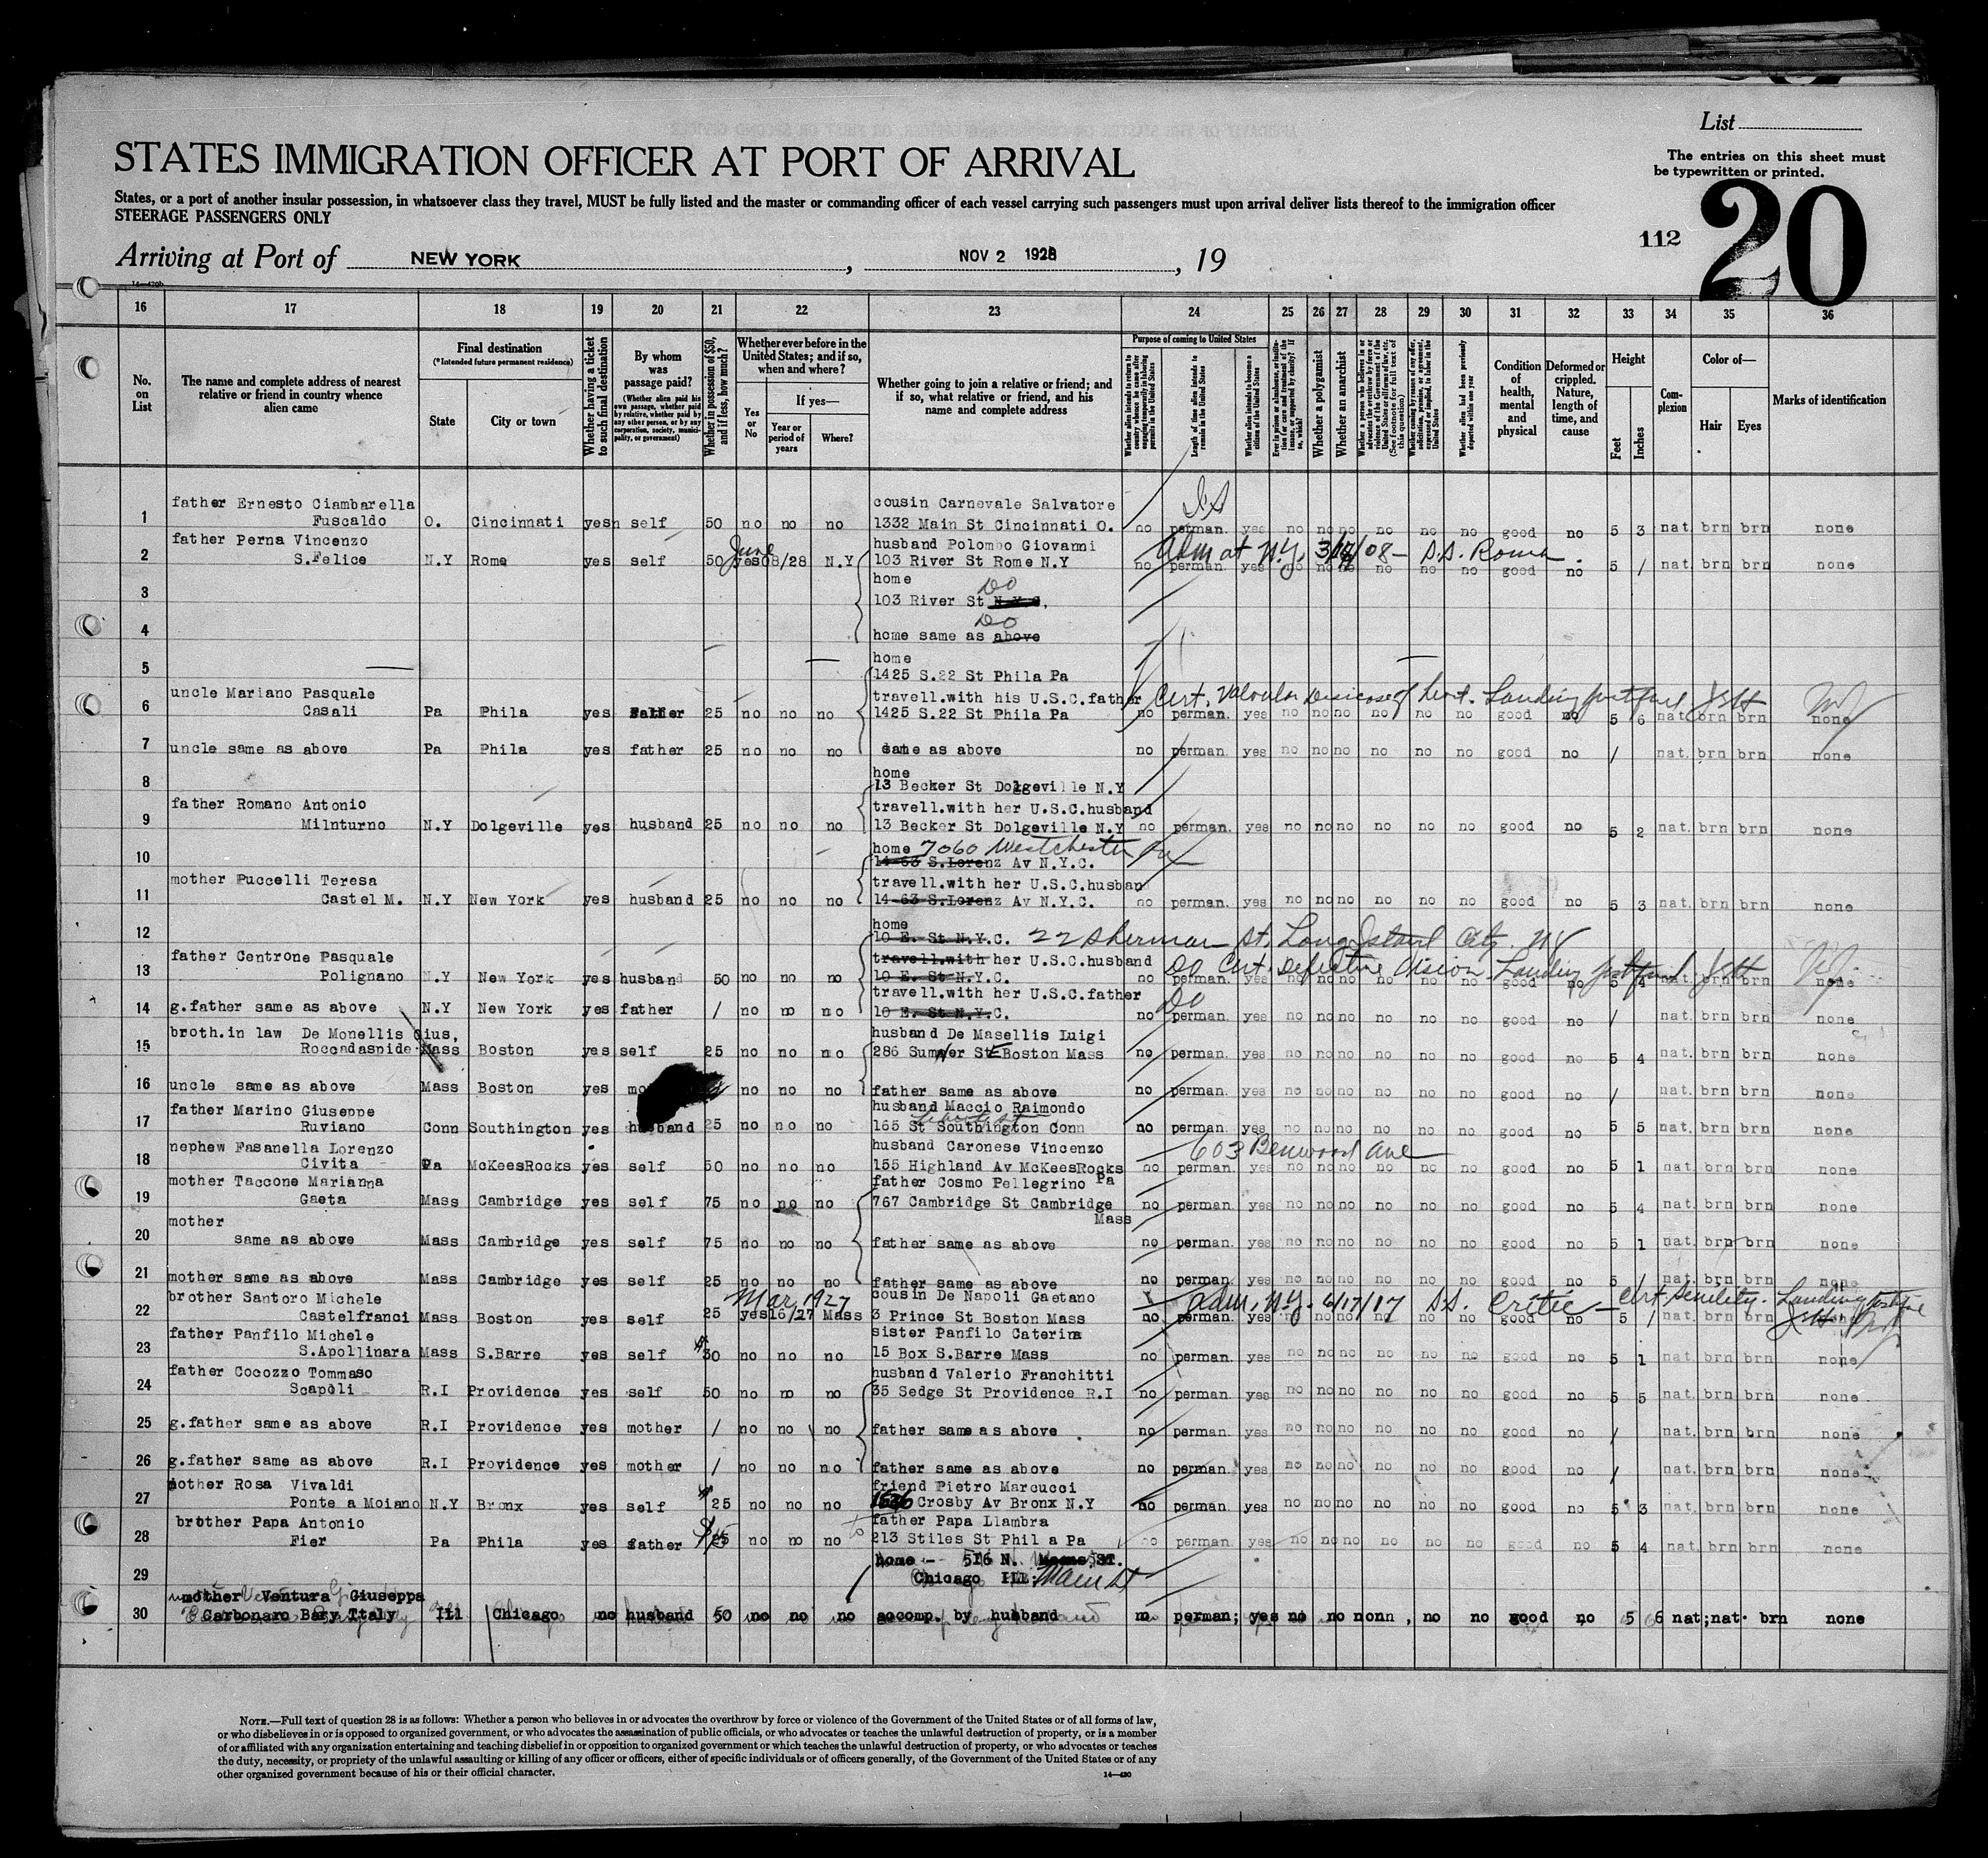 List
The entries on this sheet must
be typewritten or printed.
STATES IMMIGRATION OFFICER AT PORT OF ARRIVAL
20
112
States, or a port of another insular possession, in whatsoever class they travel, MUST be fully listed and the master or commanding officer of each vessel carrying such passengers must upon arrival deliver lists thereof to the immigration officer
STEERAGE PASSENGERS ONLY
Arriving at Port of NEW YORK, NOV 2 1928, 19
16 17 18 19 20 21 22 23 24 25 26 27 28 29 30 31 32 33 34 35 36
No. on List
The name and complete address of nearest relative or friend in country whence alien came
Final destination
(*Intended future permanent residence)
State
City or town
Whether having a ticket to such final destination
By whom was passage paid?
(Whether alien paid his own passage, whether paid by relative, whether paid by any other person, or by any corporation, society, municipality, or government)
Whether in possession of $50, and if less, how much?
Whether ever before in the United States; and if so, when and where?
Yes or No
If yes—
Year or period of years
Where?
Whether going to join a relative or friend; and if so, what relative or friend, and his name and complete address
Purpose of coming to United States
Length of time alien intends to remain in the United States
Whether alien intends to become a citizen of the United States
Whether a polygamist
Whether an anarchist
Condition of health, mental and physical
Deformed or crippled. Nature, length of time, and cause
Height
Feet
Inches
Complexion
Color of—
Hair
Eyes
Marks of identification
father Ernesto Ciambarella cousin Carnevale Salvatore
1 Fuscaldo O. Cincinnati yes self 50 no no no 1332 Main St Cincinnati O. no perman. yes no no no no no no good no 5 3 nat. brn brn none
father Perna Vincenzo June husband Polombo Giovanni adm at N.Y. 08 - S.S. Roma
2 S.Felice N.Y Rome yes self 50 yes 08/28 N.Y 103 River St Rome N.Y no perman. yes no no no no no no good no 5 / nat. brn brn none
home Do
3 103 River St
Do
4 home same as above
5 home
1425 S.22 St Phila Pa
uncle Mariano Pasquale travell.with his U.S.C.father Cert. Valvular Disease of heart. Landing
6 Casali Pa Phila yes Father 25 no no no 1425 S.22 St Phila Pa no perman. yes no no no no no no good no 5 6 nat. brn brn none
7 uncle same as above Pa Phila yes father 25 no no no same as above no perman. yes no no no no no no good no / nat. brn brn none
8 home
13 Becker St Dolgeville N.Y
father Romano Antonio travell.with her U.S.C.husband
9 Milnturno N.Y Dolgeville yes husband 25 no no no 13 Becker St Dolgeville N.Y no perman. yes no no no no no no good no 5 2 nat. brn brn none
10 home 7060 Westchester Av
14-63 S.Lorenz Av N.Y.C.
mother Puccelli Teresa travell.with her U.S.C.husban
11 Castel M. N.Y New York yes husband 25 no no no 14-63 S.Lorenz Av N.Y.C. no perman. yes no no no no no no good no 5 3 nat. brn brn none
12 home
10 E. St N.Y.C. 22 Sherman St. Long Island City. NY
father Centrone Pasquale travell.with her U.S.C.husband Do Cert. Defective Vision. Landing
13 Polignano N.Y New York yes husband 50 no no no 10 E. St N.Y.C. no perman. yes no no no no no no good no 5 4 nat. brn brn none
travell.with her U.S.C.father Do
14 g.father same as above N.Y New York yes father / no no no 10 E. St N.Y.C. no perman. yes no no no no no no good no / nat. brn brn none
broth.in law De Monellis Gius, husband De Masellis Luigi
15 Roccadaspide Mass Boston yes self 25 no no no 286 Sumner St E Boston Mass no perman. yes no no no no no no good no 5 4 nat. brn brn none
16 uncle same as above Mass Boston yes no no no father same as above no perman. yes no no no no no no good no / nat. brn brn none
father Marino Giuseppe husband Maccio Raimondo
17 Ruviano Conn Southington yes husband 25 no no no 165 St Southington Conn no perman. yes no no no no no no good no 5 5 nat. brn brn none
nephew Fasanella Lorenzo husband Caronese Vincenzo 603 Benwood Ave
18 Civita Pa McKeesRocks yes self 50 no no no 155 Highland Av McKeesRocks Pa no perman. yes no no no no no no good no 5 1 nat. brn brn none
mother Taccone Marianna father Cosmo Pellegrino
19 Gaeta Mass Cambridge yes self 75 no no no 767 Cambridge St Cambridge Mass no perman. yes no no no no no no good no 5 4 nat. brn brn none
mother
20 same as above Mass Cambridge yes self 75 no no no father same as above no perman. yes no no no no no no good no 5 1 nat. brn brn none
21 mother same as above Mass Cambridge yes self 25 no no no father same as above no perman. yes no no no no no no good no 5 / nat. brn brn none
brother Santoro Michele Mar 1927 cousin De Napoli Gaetano adm. N.Y. 6/17/17 S.S. Cretic - Cert Senility. Landing
22 Castelfranci Mass Boston yes self 25 yes 16/27 Mass 3 Prince St Boston Mass no perman. yes no no no no no no good no 5 / nat. brn brn
father Panfilo Michele sister Panfilo Caterina
23 S.Apollinara Mass S.Barre yes self $30 no no no 15 Box S.Barre Mass no perman. yes no no no no no no good no 5 1 nat. brn brn none
father Cocozzo Tommaso husband Valerio Franchitti
24 Scapoli R.I Providence yes self 50 no no no 35 Sedge St Providence R.I no perman. yes no no no no no no good no 5 5 nat. brn brn none
25 g.father same as above R.I Providence yes mother / no no no father same as above no perman. yes no no no no no no good no / nat. brn brn none
26 g.father same as above R.I Providence yes mother / no no no father same as above no perman. yes no no no no no no good no / nat. brn brn none
mother Rosa Vivaldi friend Pietro Marcucci
27 Ponte a Moiano N.Y Bronx yes self $25 no no no Crosby Av Bronx N.Y no perman. yes no no no no no no good no 5 3 nat. brn brn none
brother Papa Antonio father Papa Llambra
28 Fier Pa Phila yes father 25 no no no 213 Stiles St Phil a Pa no perman. yes no no no no no no good no 5 4 nat. brn brn none
home - 516 N. ST.
29 Chicago Ill: Main St
mother Ventura Giuseppa
30 Carbonaro Bary Italy Ill Chicago no husband 50 no no no accomp. by husband no perman; yes no no nonn, no no good no 5 6 nat;nat. brn none
NOTE.—Full text of question 28 is as follows: Whether a person who believes in or advocates the overthrow by force or violence of the Government of the United States or of all forms of law,
or who disbelieves in or is opposed to organized government, or who advocates the assassination of public officials, or who advocates or teaches the unlawful destruction of property, or is a member
of or affiliated with any organization entertaining and teaching disbelief in or opposition to organized government or which teaches the unlawful destruction of property, or who advocates or teaches
the duty, necessity, or propriety of the unlawful assaulting or killing of any officer or officers, either of specific individuals or of officers generally, of the Government of the United States or of any
other organized government because of his or their official character.
14—430